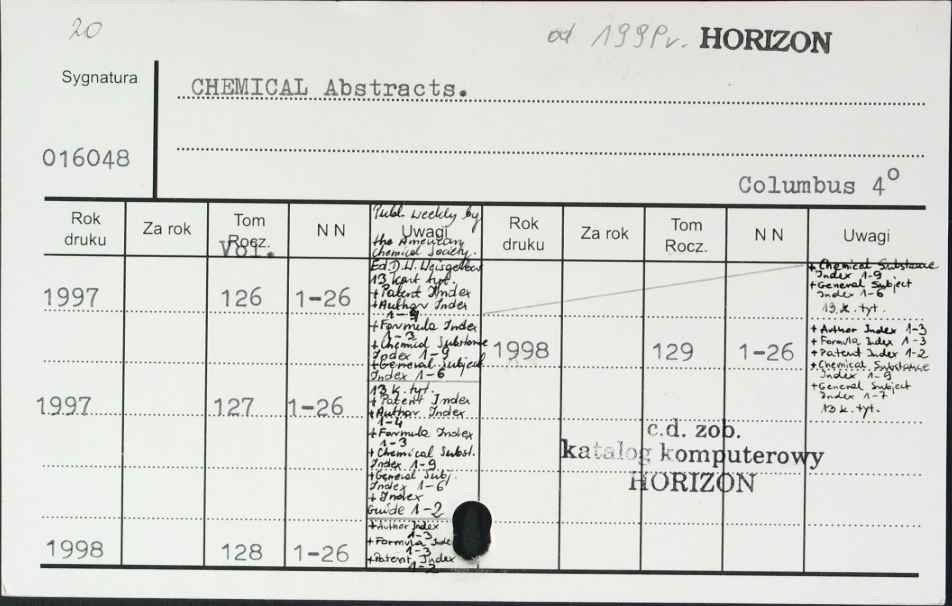 20
od 1998 r. HORIZON
Sygnatura
CHEMICAL Abstracts.
016048
Columbus 4°
Rok druku
Za rok
Tom Rocz.
Vol.
N N
Uwagi
Rok druku
Za rok
Tom Rocz.
N N
Uwagi
Publ. weekly by
the American
Chemical Society.
Ed. D. W.
1997 126 1-26
13 kart tyt.
+Patent Index
+Author Index
1-4
+Formula Index
1-3
+Chemical Substance
Index 1-9
+General Subject
Index 1-6
1997 127 1-26
13 k. tyt.
+Patent Index
+Author Index
1-4
+Formula Index
1-3
+Chemical Subst.
Index 1-9
+General Subj.
Index 1-6
+Index
Guide 1-2
1998 128 1-26
+Author Index
1-3
+Formula Index
1-3
+Patent Index
1-2
+Chemical Substance
Index 1-9
+General Subject
Index 1-6
13 k. tyt.
1998 129 1-26
+Author Index 1-3
+Formula Index 1-3
+Patent Index 1-2
+Chemical Substance
Index 1-9
+General Subject
Index 1-7
13 k. tyt.
c.d. zob.
katalog komputerowy
HORIZON